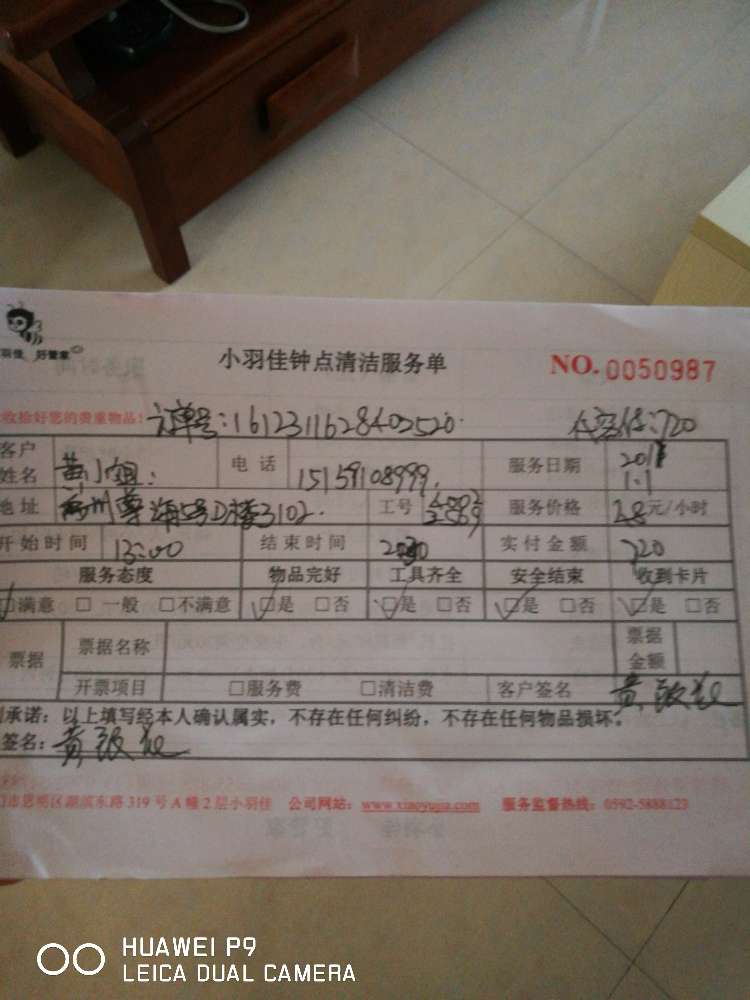 好管家
小羽佳钟点清洁服务单 NO. 0050987
收拾好您的贵重物品! 订单号:1612311628402520. :720
客户姓名 黄小姐. 电话 15159108999. 服务日期 1.1
地址 3102. 工号 服务价格 元/小时
开始时间 13:00 结束时间 实付金额 720
服务态度 物品完好 工具齐全 安全结束 收到卡片
☑满意 □一般 □不满意 ☑是 □否 ☑是 □否 ☑是 □否 ☑是 □否
票据 票据名称 票据金额
开票项目 □服务费 □清洁费 客户签名 黄
承诺:以上填写经本人确认属实,不存在任何纠纷,不存在任何物品损坏。
签名: 黄
市思明区湖滨东路319号A幢2层小羽佳 公司网站:www.xiaoyujia.com 服务监督热线:0592-5888123
HUAWEI P9
LEICA DUAL CAMERA